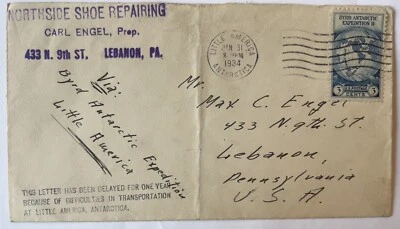 NORTHSIDE SHOE REPAIRING
CARL ENGEL, Prop.
433 N. 9th ST. LEBANON, PA.
LITTLE AMERICA
JAN 31
1934
ANTARCTICA
BYRD ANTARCTIC
EXPEDITION II
3 CENTS 3
Via:
Byrd Antarctic Expedition
Little America
Mr. Max C. Engel
433 N. 9th St.
Lebanon,
Pennsylvania
U. S. A.
THIS LETTER HAS BEEN DELAYED FOR ONE YEAR
BECAUSE OF DIFFICULTIES IN TRANSPORTATION
AT LITTLE AMERICA, ANTARCTICA.